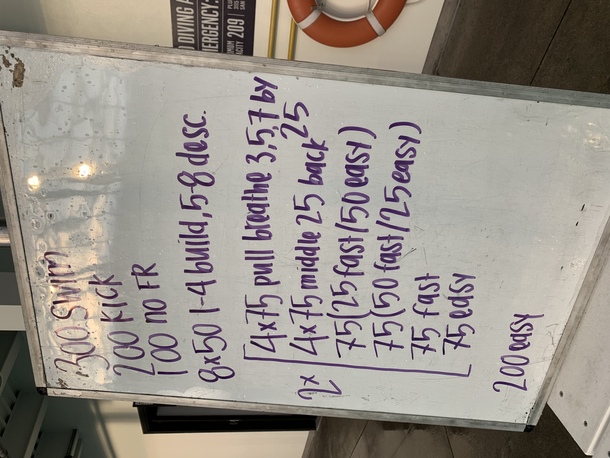 300 swim
200 kick
100 no FR
8x50 1-4 build, 5-8 desc.
2x
4x75 pull breathe 3,5,7 by 25
4x75 middle 25 back
75 (25 fast/50 easy)
75 (50 fast/25 easy)
75 fast
75 easy
200 easy
DIVING
EMERGENCY:
209